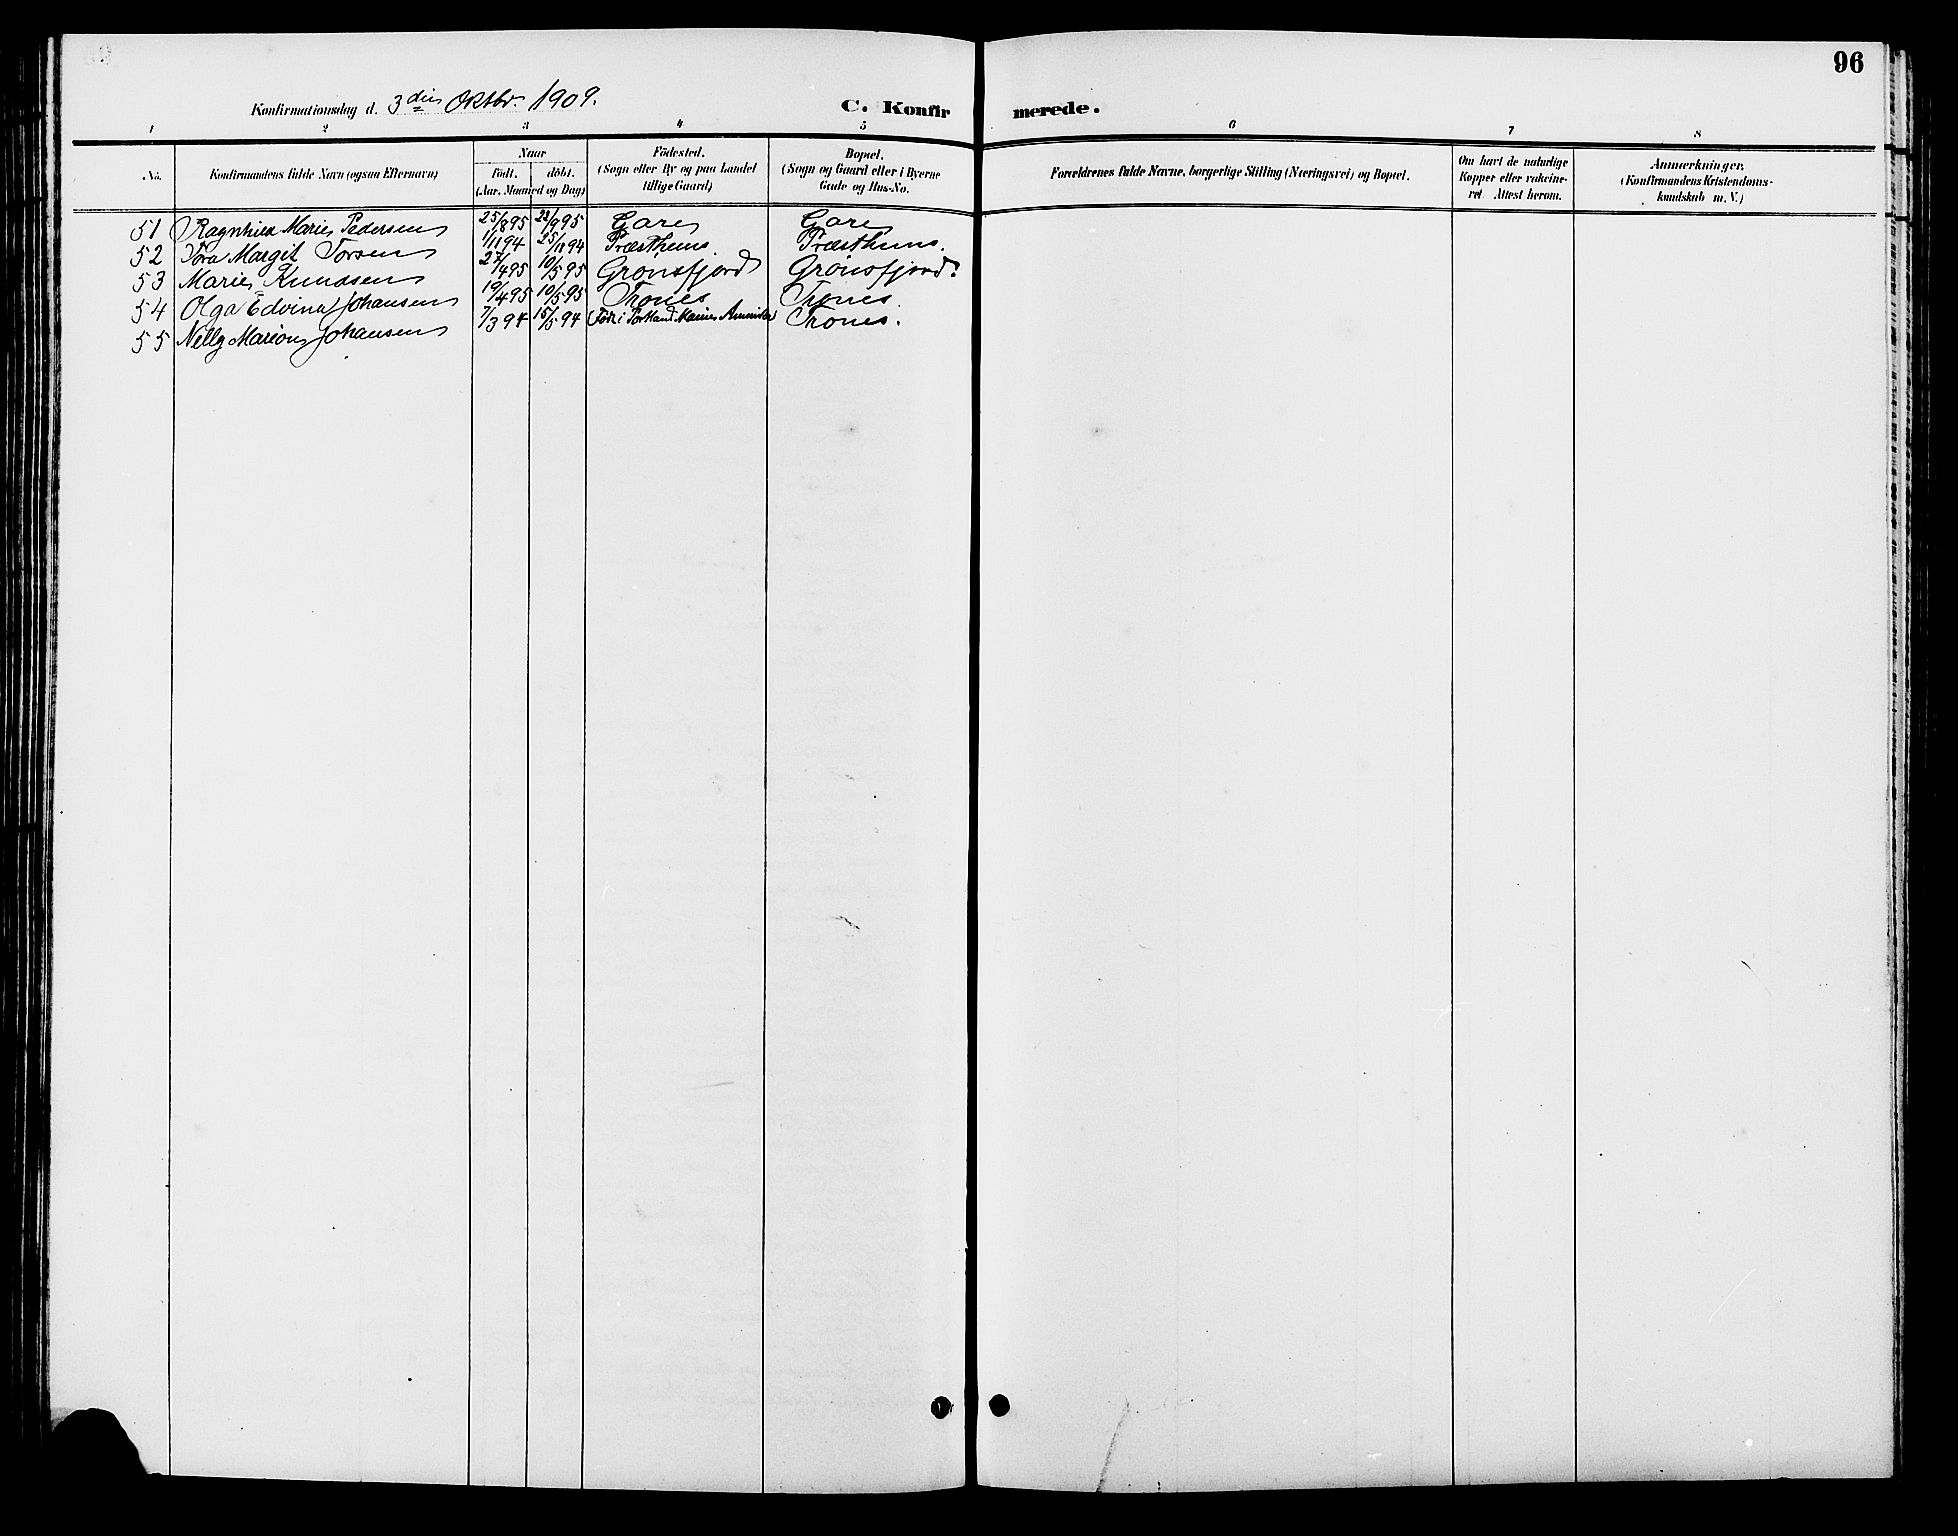 96
Konfirmationsdag d. 3die Oktbr. 1909.
C. Konfirmerede.
1 2 3 4 5 6 7 8
No.
Konfirmandens fulde Navn (ogsaa Efternavn)
Naar
Födt. döbt.
(Aar, Maaned og Dag)
Födested.
(Sogn eller By og paa Landet
tillige Gaard)
Bopæl.
(Sogn og Gaard eller i Byerne
Gade og Hus-No.
Forældrenes fulde Navne, borgerlige Stilling (Næringsvei) og Bopæl.
Om havt de naturlige
Kopper eller vakcine-
ret. Attest herom.
Anmærkninger,
(Konfirmandens Kristendoms-
kundskab m. V.)
51 Ragnhild Marie Pedersen 25/8 95 22/9 95 Gare Gare
52 Tora Margit Torsen 1/11 94 25/11 94 Præsthems Præsthems.
53 Marie Knudsen 27/4 95 10/5 95 Grönsfjord Grönsfjord.
54 Olga Edvina Johansen 19/4 95 10/5 95 Trones Trones.
55 Nelly Marion Johansen 7/3 94 15/5 94 (Föd i Portland. Maine Amerika) Trones.